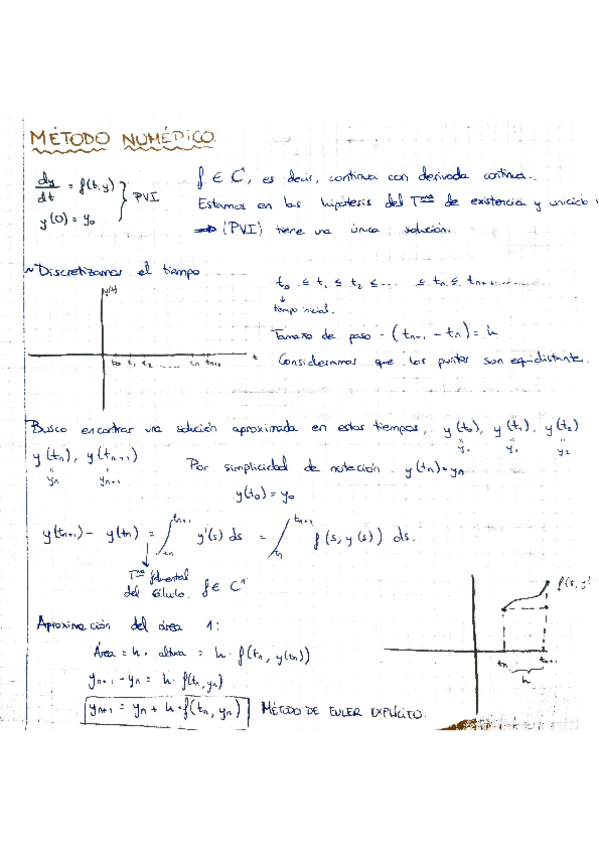 MÉTODO NUMÉRICO.
dy/dt = f(t,y) } PVI
y(0) = y₀
f ∈ C¹, es decir, continua con derivada continua.
Estamos en las hipótesis del Tma de existencia y unicidad
⇒ (PVI) tiene una única solución.
~ Discretizamos el tiempo
t₀ ≤ t₁ ≤ t₂ ≤ ... ≤ tn ≤ tn+1 ......
↓
tiempo inicial.
y(t)
t₀ t₁ t₂ ...... tn tn+1 t
Tamaño de paso - (tn+1 - tn) = h
Consideramos que los puntos son equidistante
Busco encontrar una solución aproximada en estos tiempos, y(t₀), y(t₁), y(t₂)
y₀ y₁ y₂
y(tn), y(tn+1)
yn yn+1
Por simplicidad de notación . y(tn) = yn
y(t₀) = y₀
y(tn+1) - y(tn) = ∫tn^tn+1 y'(s) ds = ∫tn^tn+1 f(s, y(s)) ds.
↓
Tma fdmental
del cálculo. f ∈ C¹
f(s, y
tn tn+1
h
Aproximación del área 1:
Área = h · altura = h · f(tn, y(tn))
yn+1 - yn = h · f(tn, yn)
yn+1 = yn + h · f(tn, yn) MÉTODO DE EULER EXPLÍCITO.